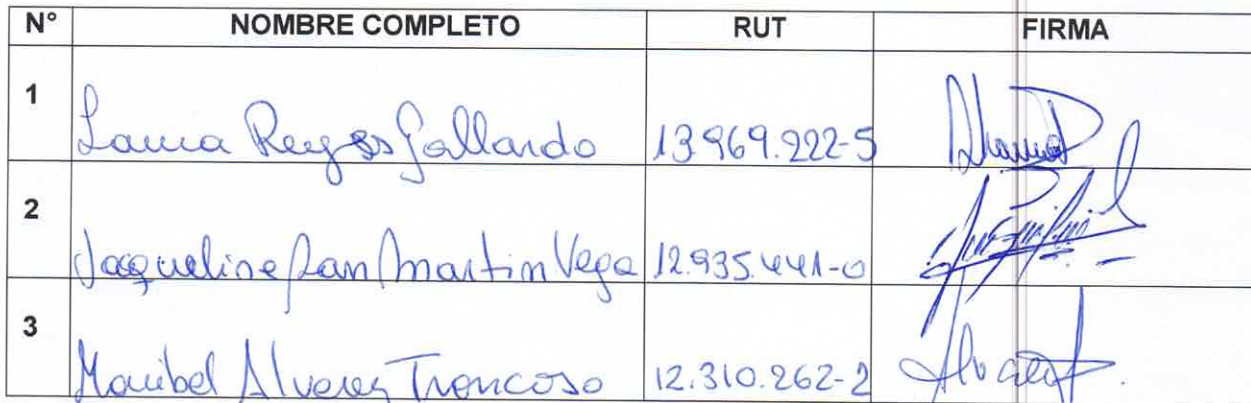 N° NOMBRE COMPLETO RUT FIRMA
1 Laura Reyes Gallardo 13.969.222-5
2 Jaqueline San Martin Vega 12.935.441-0
3 Maribel Alverez Troncoso 12.310.262-2